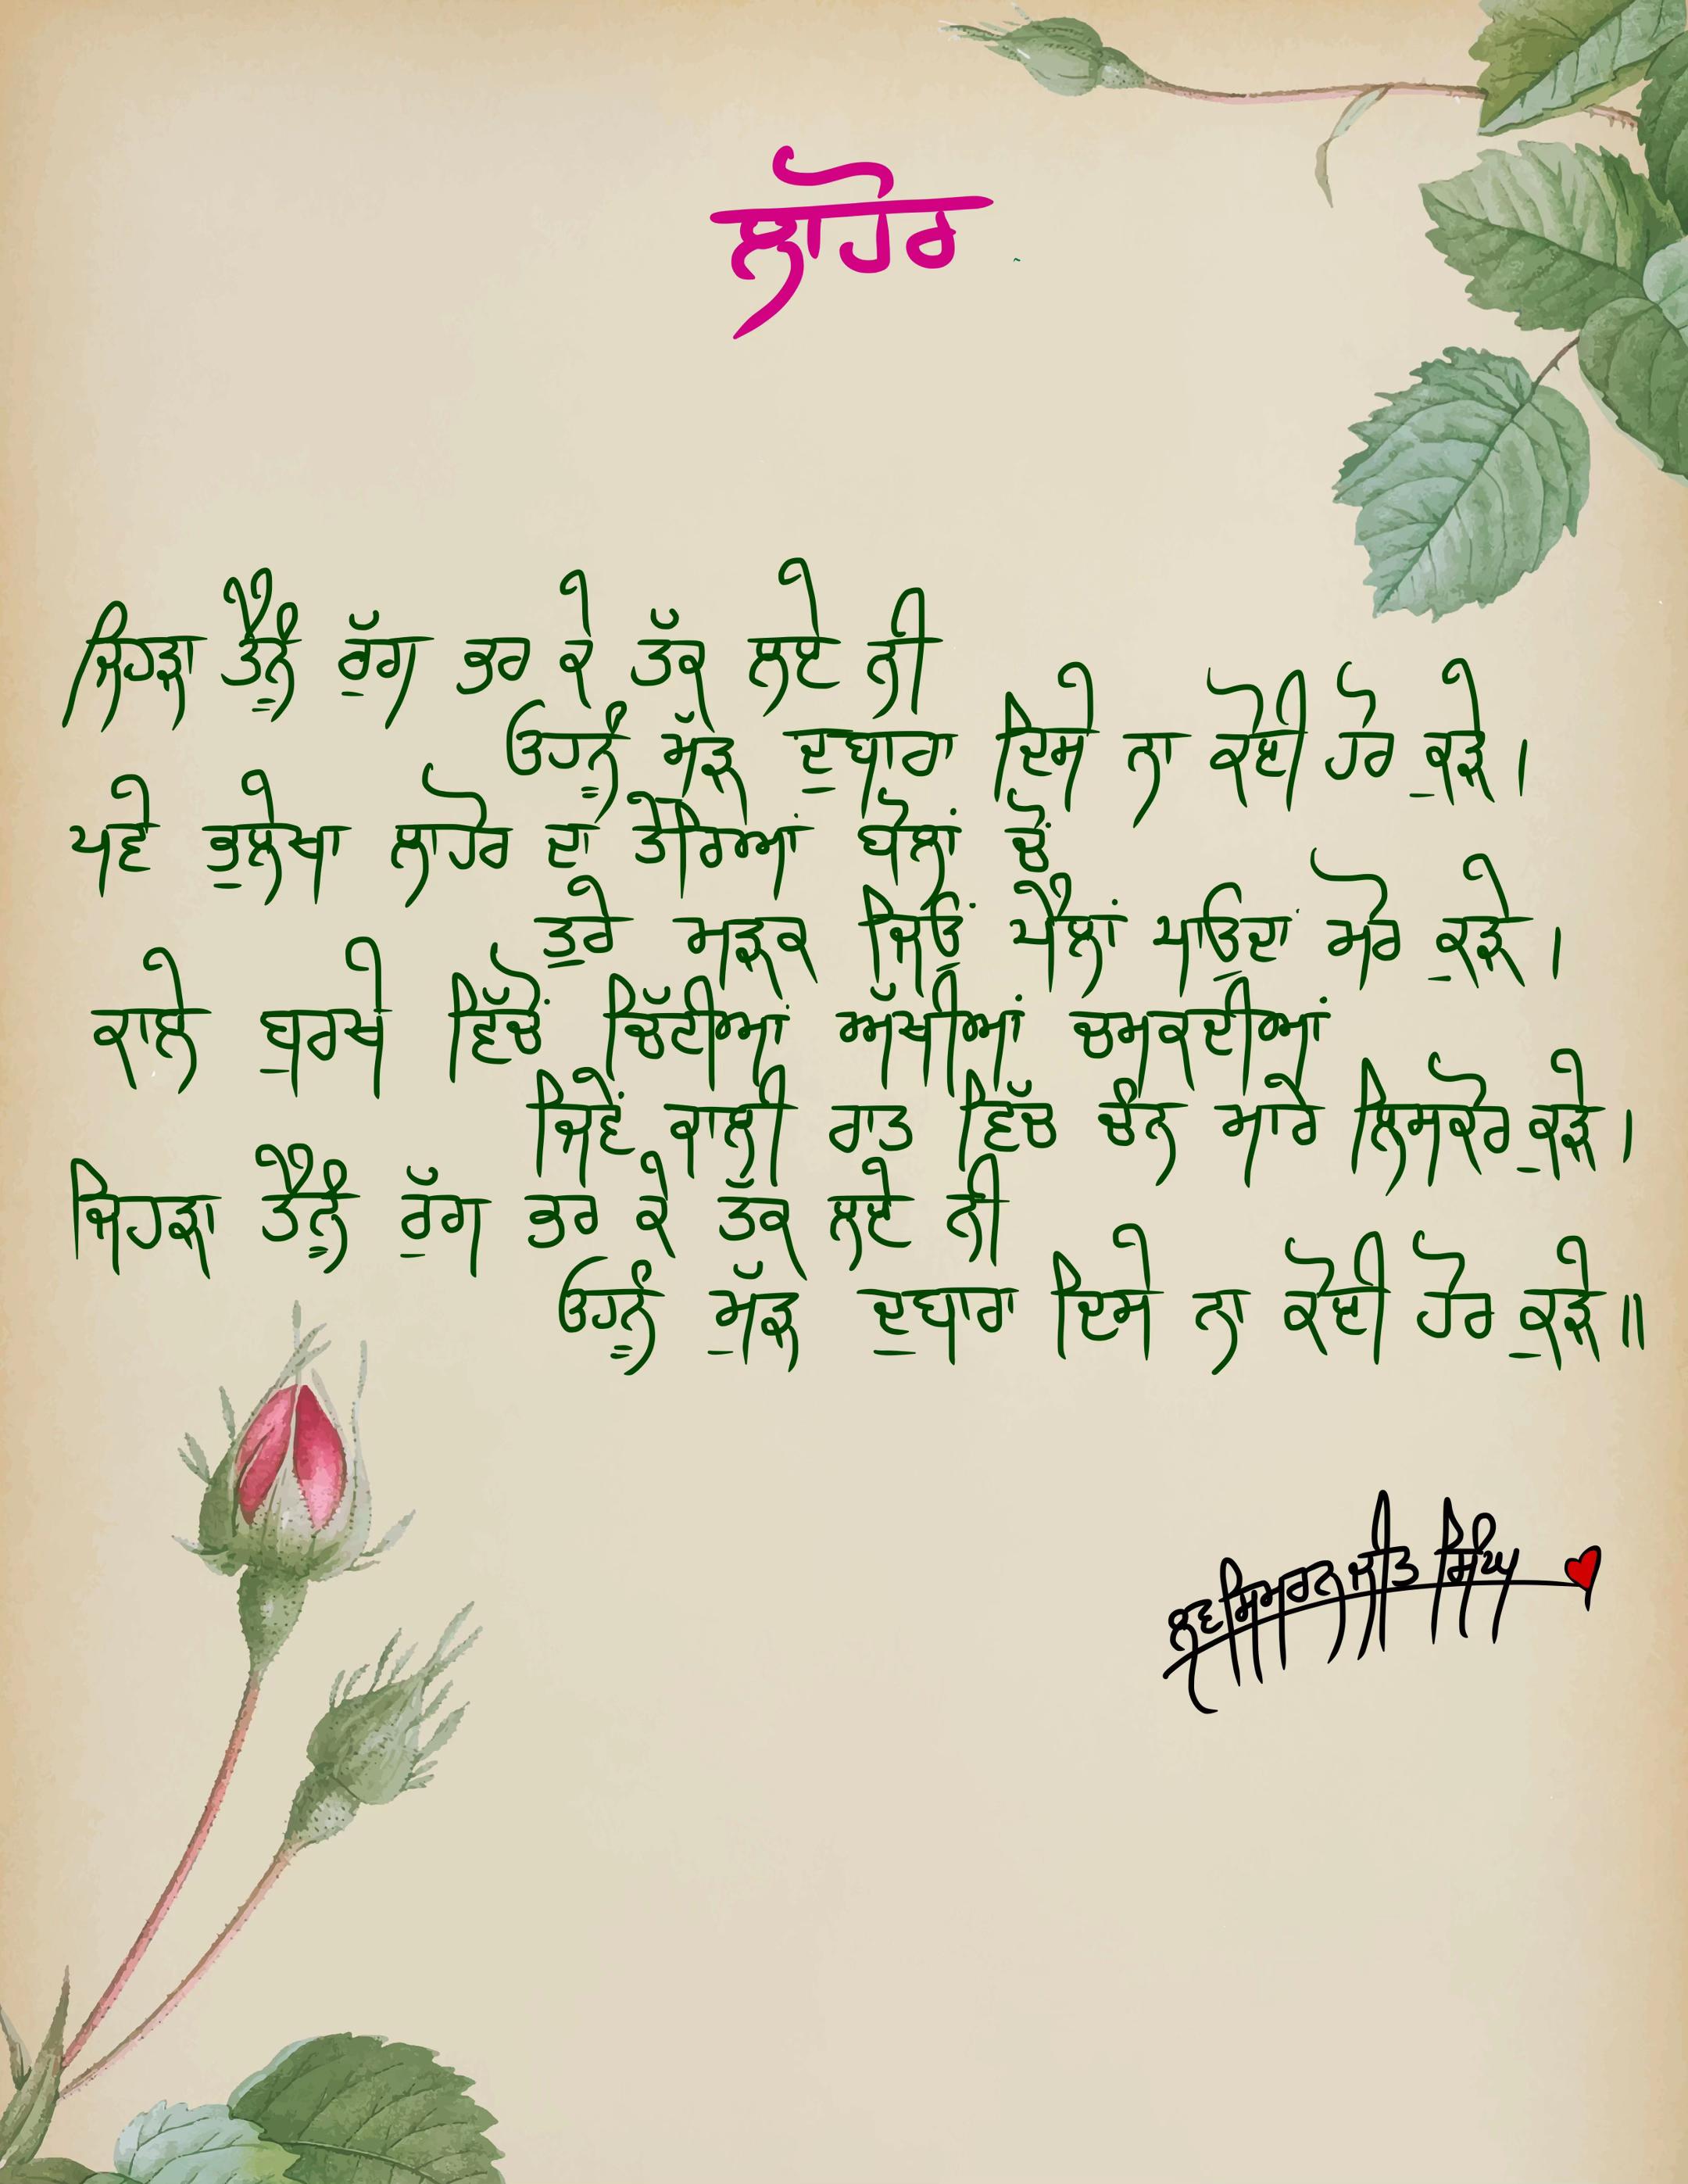 ਲਾਹੋਰ
ਜਿਹੜਾ ਤੈਨੂੰ ਰੁੱਗ ਭਰ ਕੇ ਤੱਕ ਲਏ ਨੀ
ਓਹਨੂੰ ਮੁੱੜ ਦੁਬਾਰਾ ਦਿਸੇ ਨਾ ਕੋਈ ਹੋਰ ਕੁੜੇ।
ਪਵੇ ਭੁਲੇਖਾ ਲਾਹੋਰ ਦਾ ਤੇਰਿਆਂ ਬੋਲਾਂ ਚੋਂ
ਤੁਰੇ ਮੜਕ ਜਿਉਂ ਪੈਲਾਂ ਪਾਉਂਦਾ ਮੋਰ ਕੁੜੇ।
ਕਾਲੇ ਬੁਰਖੇ ਵਿੱਚੋਂ ਚਿੱਟੀਆਂ ਅੱਖੀਆਂ ਚਮਕਦੀਆਂ
ਜਿਵੇਂ ਕਾਲੀ ਰਾਤ ਵਿੱਚ ਚੰਨ ਮਾਰੇ ਲਿਸਕੋਰ ਕੁੜੇ।
ਜਿਹੜਾ ਤੈਨੂੰ ਰੁੱਗ ਭਰ ਕੇ ਤੱਕ ਲਏ ਨੀ
ਓਹਨੂੰ ਮੁੱੜ ਦੁਬਾਰਾ ਦਿਸੇ ਨਾ ਕੋਈ ਹੋਰ ਕੁੜੇ॥
ਲਵਸਿਮਰਨਜੀਤ ਸਿੰਘ